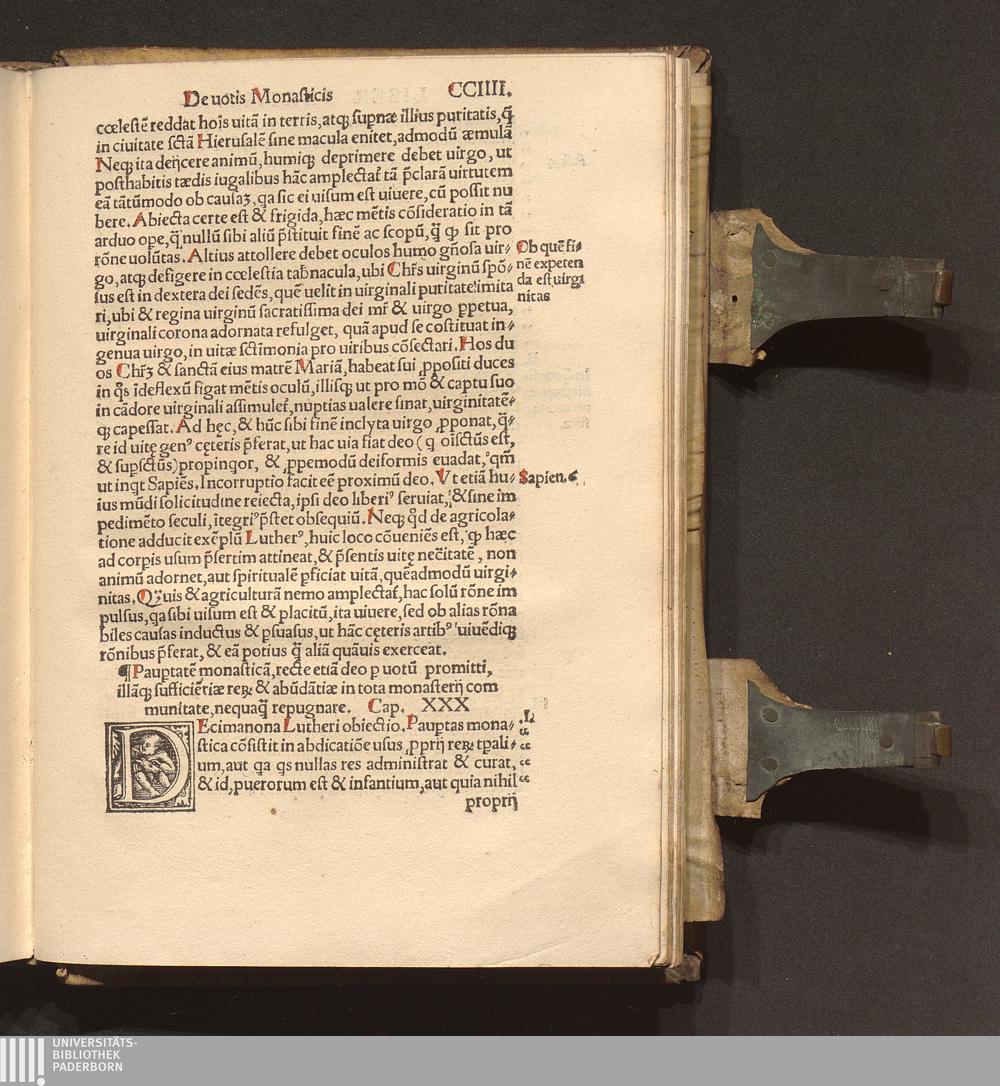 De uotis Monasticis CCIIII.
cœlestē reddat hoīs uitā in terris, atqꝫ supnæ illius puritatis, q̄
in ciuitate sctā Hierusalē sine macula enitet, admodū æmulā
Neqꝫ ita deijcere animū, humiqꝫ deprimere debet uirgo, ut
posthabitis tædis iugalibus hāc amplectat̄ tā p̄clarā uirtutem
eā tātūmodo ob causaꝫ, qa sic ei uisum est uiuere, cū possit nu
bere. Abiecta certe est & frigida, hæc mētis cōsideratio in tā
arduo ope, q̄ nullū sibi aliū p̄stituit finē ac scopū, q̄ ꝙ sit pro
rōne uolūtas. Altius attollere debet oculos humo gn̄osa uir⸗
go, atqꝫ defigere in cœlestia tab̄nacula, ubi Chr̄s uirginū spō⸗
sus est in dextera dei sedēs, quē uelit in uirginali puritate imita
ri, ubi & regina uirginū sacratissima dei mr̄ & uirgo ꝑpetua,
uirginali corona adornata refulget, quā apud se cōstituat in⸗
genua uirgo, in uitæ sctīmonia pro uiribus cōsectari. Hos du
os Chr̄ꝫ & sanctā eius matrē Mariā, habeat sui ꝓpositi duces
in q̄s īdeflexū figat mētis oculū, illisqꝫ ut pro mō & captu suo
in cādore uirginali assimulet̄, nuptias ualere sinat, uirginitatē⸗
qꝫ capessat. Ad hęc, & hūc sibi finē inclyta uirgo ꝓponat, q̄⸗
re id uitę genꝰ cęteris p̄ferat, ut hac uia fiat deo (q oīsctūs est,
& supsctūs) propinqor, & ꝓpemodū deiformis euadat, qm̄
ut inqt Sapiēs. Incorruptio facit eē proximū deo. Vt etiā hu⸗
ius mūdi solicitudine reiecta, ipsi deo liberiꝰ seruiat, & sine im
pedimēto seculi, ītegriꝰ p̄stet obsequiū. Neqꝫ qd̄ de agricola⸗
tione adducit exēplū Lutherꝰ, huic loco cōueniēs est, ꝙ hæc
ad corpis usum p̄sertim attineat, & p̄sentis uitę nec̄itatē, non
animū adornet, aut spiritualē pficiat uitā, quēadmodū uirgi⸗
nitas. Qꝫuis & agriculturā nemo amplectat̄, hac solū rōne im
pulsus, qa sibi uisum est & placitū, ita uiuere, sed ob alias rōna
biles causas inductus & psuasus, ut hāc cęteris artibꝰ uiuēdiqꝫ
rōnibus p̄ferat, & eā potius q̄ aliā quāuis exerceat.
Ob quē fi⸗
nē expeten
da est uirgi
nitas
Sapien. 6.
¶ Paupratē monasticā, recte etiā deo p uotū promitti,
illāqꝫ sufficiētiæ reꝝ & abūdātiæ in tota monasterij com
munitate, nequaq̄ repugnare. Cap. XXX
DEcimanona Lutheri obiectio. Pauptas mona⸗
stica cōsistit in abdicatiōe usus ꝓprij reꝝ tpali⸗
um, aut qa qs nullas res administrat & curat,
& id, puerorum est & infantium, aut quia nihil
proprij
L
UNIVERSITÄTS-
BIBLIOTHEK
PADERBORN